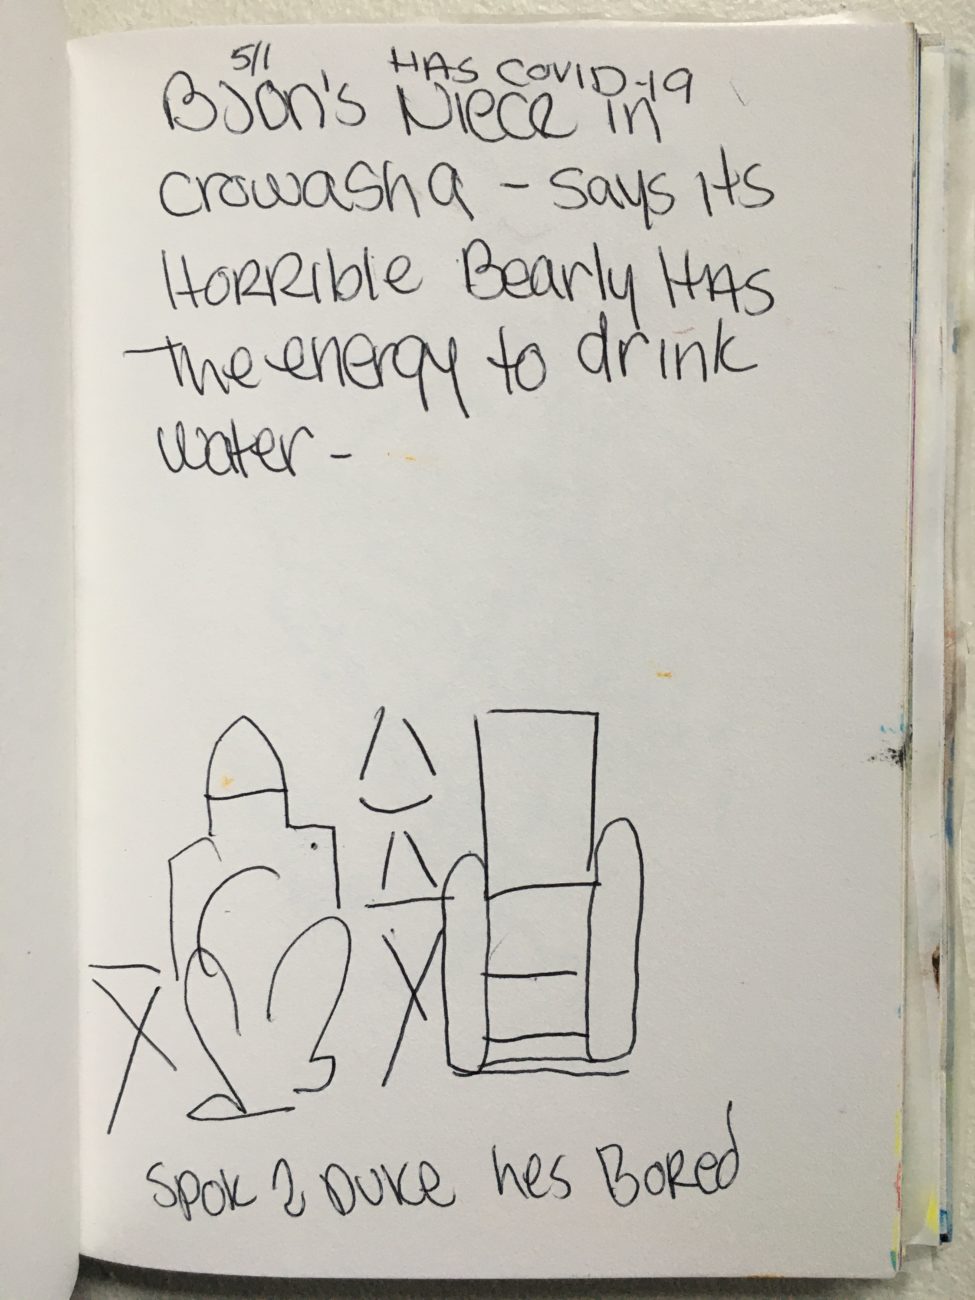 5/1
HAS COVID-19
BJon's Niece in
crowasha - says its
HORRible Bearly HAS
the energy to drink
water -
Spok 2 DUKe hes BoReD